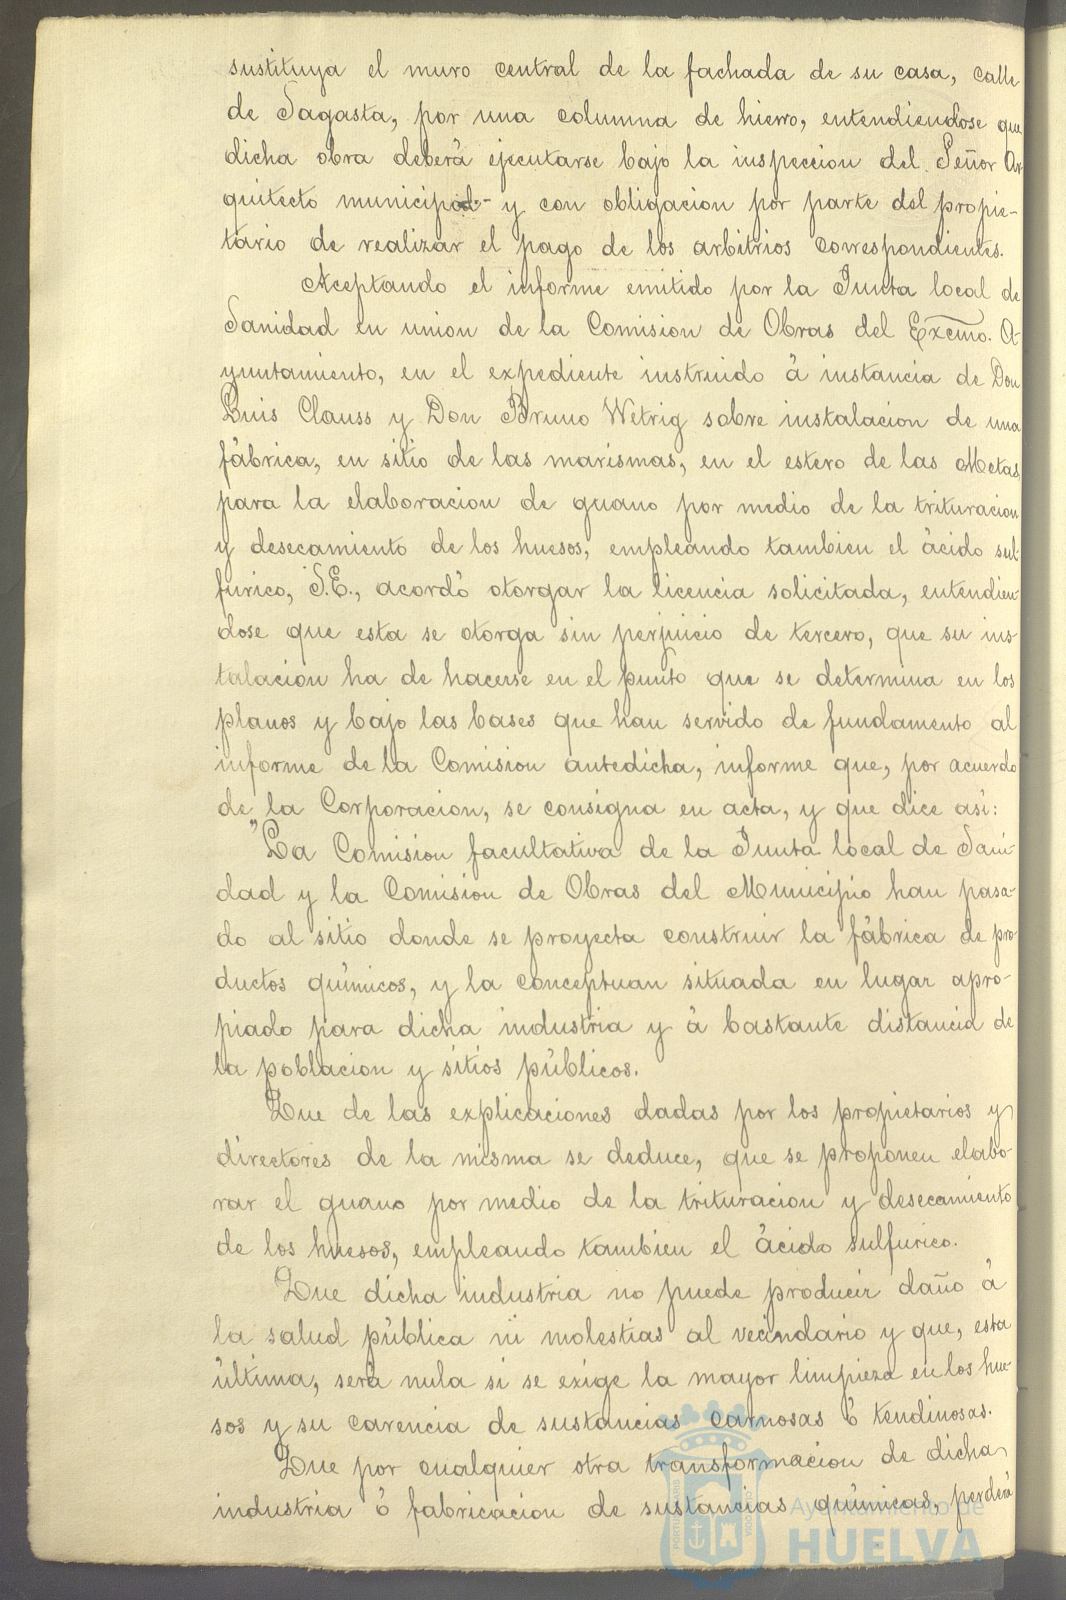 sustituya el muro central de la fachada de su casa, calle
de Sagasta, por una columna de hierro, entendiendose que
dicha obra deberá ejecutarse bajo la inspeccion del Señor Ar
quitecto municipal- y con obligacion por parte del propie-
tario de realizar el pago de los arbitrios correspondientes.
Aceptando el informe emitido por la Junta local de
Sanidad en union de la Comision de Obras del Excmo. A-
yuntamiento, en el expediente instruido á instancia de Don
Luis Clauss y Don Bruno Wetrig sobre instalacion de una
fábrica, en sitio de las marismas, en el estero de las Metas
para la elaboracion de guano por medio de la trituracion
y desecamiento de los huesos, empleando tambien el ácido sul-
furico, S.E., acordó otorgar la licencia solicitada, entendien
dose que esta se otorga sin perjuicio de tercero, que su ins-
talacion ha de hacerse en el punto que se determina en los
planos y bajo las bases que han servido de fundamento al
informe de la Comision antedicha, informe que, por acuerdo
de la Corporacion, se consigna en acta, y que dice asi:
"La Comision facultativa de la Junta local de Sani-
dad y la Comision de Obras del Municipio han pasa-
do al sitio donde se proyecta construir la fábrica de pro-
ductos químicos, y la conceptuan situada en lugar apro-
piado para dicha industria y á bastante distancia de
la poblacion y sitios públicos.
Que de las explicaciones dadas por los propietarios y
directores de la misma se deduce, que se proponen elabo-
rar el guano por medio de la trituracion y desecamiento
de los huesos, empleando tambien el ácido sulfurico.
Que dicha industria no puede producir daño á
la salud pública ni molestias al vecindario y que, esta
última, será nula si se exige la mayor limpieza en los hue-
sos y su carencia de sustancias carnosas ó tendinosas.
Que por cualquier otra transformacion de dicha
industria ó fabricacion de sustancias químicas, perderá
Ayuntamiento de
HUELVA